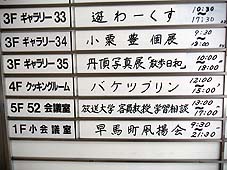 3F ギャラリー33 遊わーくす 10:30〜17:30
3F ギャラリー34 小栗豊個展 9:30〜18:00
3F ギャラリー35 丹頂写真展「散歩日和」 10:00〜18:00
4F クッキングルーム バケツプリン 12:00〜15:00
5F 52会議室 放送大学 客員教授 学習相談 13:00〜17:00
1F 小会議室 早馬町凧揚会 9:30〜21:30